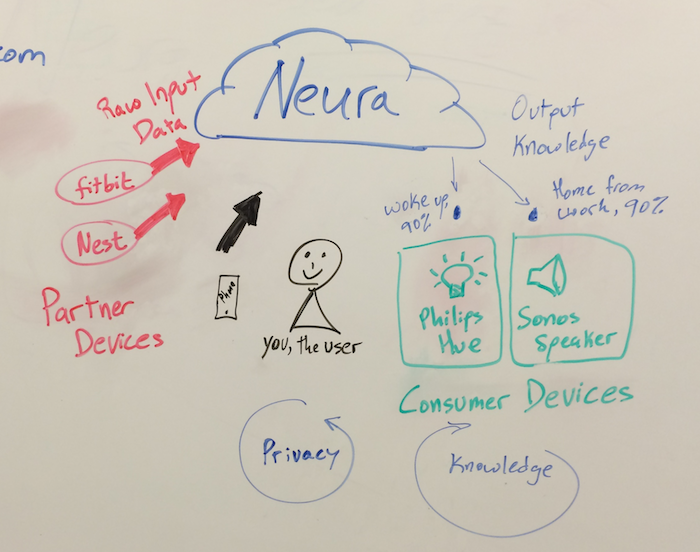 com
Neura
Raw Input
Data
fitbit
Nest
Partner
Devices
Phone
you, the user
Output
Knowledge
woke up,
90%
Home from
work, 90%
Philips
Hue
Sonos
Speaker
Consumer Devices
Privacy
Knowledge